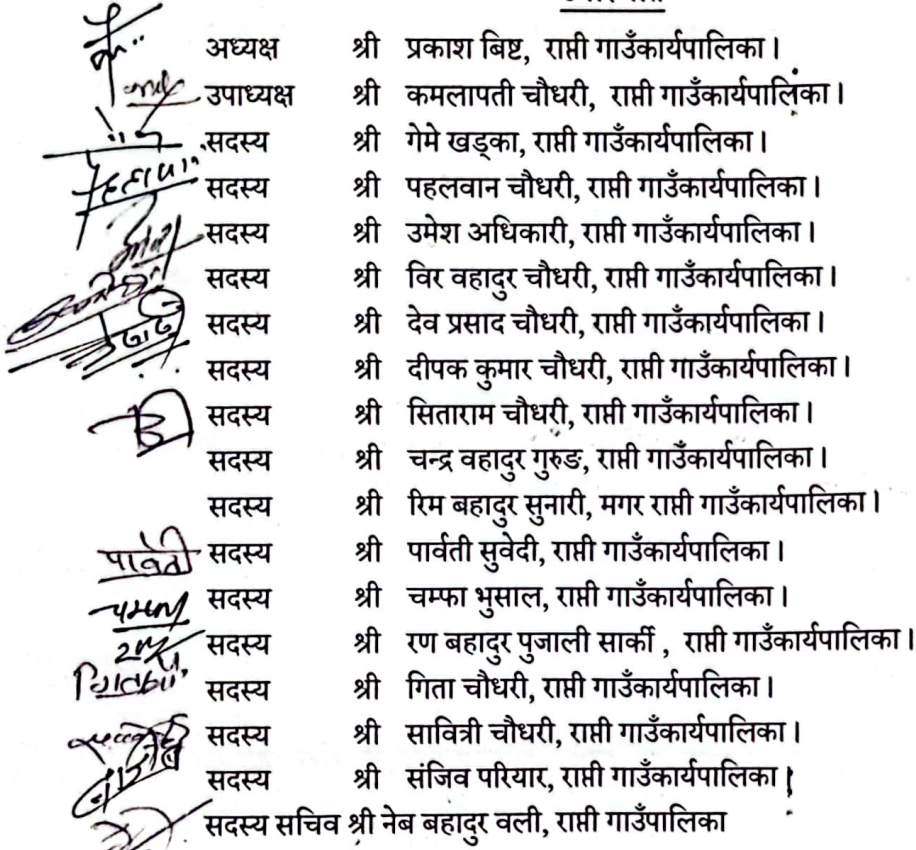 अध्यक्ष श्री प्रकाश बिष्ट, राप्ती गाउँकार्यपालिका।
उपाध्यक्ष श्री कमलापती चौधरी, राप्ती गाउँकार्यपालिका।
सदस्य श्री गेमे खड्का, राप्ती गाउँकार्यपालिका।
सदस्य श्री पहलवान चौधरी, राप्ती गाउँकार्यपालिका।
सदस्य श्री उमेश अधिकारी, राप्ती गाउँकार्यपालिका।
सदस्य श्री विर वहादुर चौधरी, राप्ती गाउँकार्यपालिका।
सदस्य श्री देव प्रसाद चौधरी, राप्ती गाउँकार्यपालिका।
सदस्य श्री दीपक कुमार चौधरी, राप्ती गाउँकार्यपालिका।
सदस्य श्री सिताराम चौधरी, राप्ती गाउँकार्यपालिका।
सदस्य श्री चन्द्र वहादुर गुरुङ, राप्ती गाउँकार्यपालिका।
सदस्य श्री रिम बहादुर सुनारी, मगर राप्ती गाउँकार्यपालिका।
पार्वती सदस्य श्री पार्वती सुवेदी, राप्ती गाउँकार्यपालिका।
चम्फा सदस्य श्री चम्फा भुसाल, राप्ती गाउँकार्यपालिका।
सदस्य श्री रण बहादुर पुजाली सार्की , राप्ती गाउँकार्यपालिका।
सदस्य श्री गिता चौधरी, राप्ती गाउँकार्यपालिका।
सदस्य श्री सावित्री चौधरी, राप्ती गाउँकार्यपालिका।
सदस्य श्री संजिव परियार, राप्ती गाउँकार्यपालिका।
सदस्य सचिव श्री नेब बहादुर वली, राप्ती गाउँपालिका